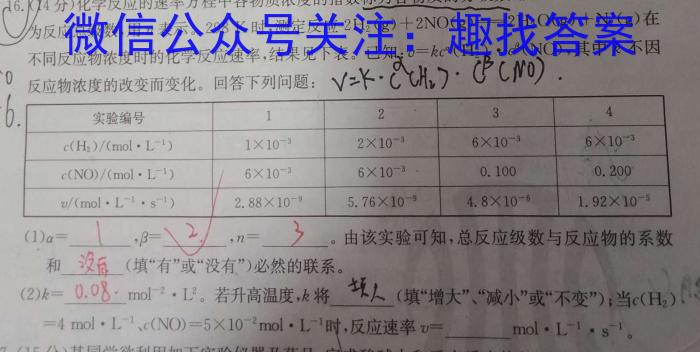 16.(14分)化学反应的速率方程中各物质浓度的指数称为各物质的反应级数
为反应 表示。 时 定反应2H₂(g)+2NO 在
微信公众号关注：趣找答案
不同反应物浓度时的化学反应速率，结果见下表。已知：v=kc 其中 不因
反应物浓度的改变而变化。回答下列问题： V=K·cα(H₂)·cβ(NO).
实验编号 1 2 3 4
c(H₂)/(mol·L⁻¹) 1×10⁻³ 2×10⁻³ 6×10⁻³ 6×10⁻³
c(NO)/(mol·L⁻¹) 6×10⁻³ 6×10⁻³ 0.100 0.200
v/(mol·L⁻¹·s⁻¹) 2.88×10⁻⁹ 5.76×10⁻⁹ 4.8×10⁻⁶ 1.92×10⁻⁵
(1)α= 1 ,β= 2 ,n= 3 。由该实验可知，总反应级数与反应物的系数
和 没有 (填“有”或“没有”)必然的联系。
(2)k= 0.08 mol⁻²·L²。若升高温度，k将 (填“增大”、“减小”或“不变”)；当c(H₂)
=4 mol·L⁻¹、c(NO)=5×10⁻² mol·L⁻¹时，反应速率v= mol·L⁻¹·s⁻¹。